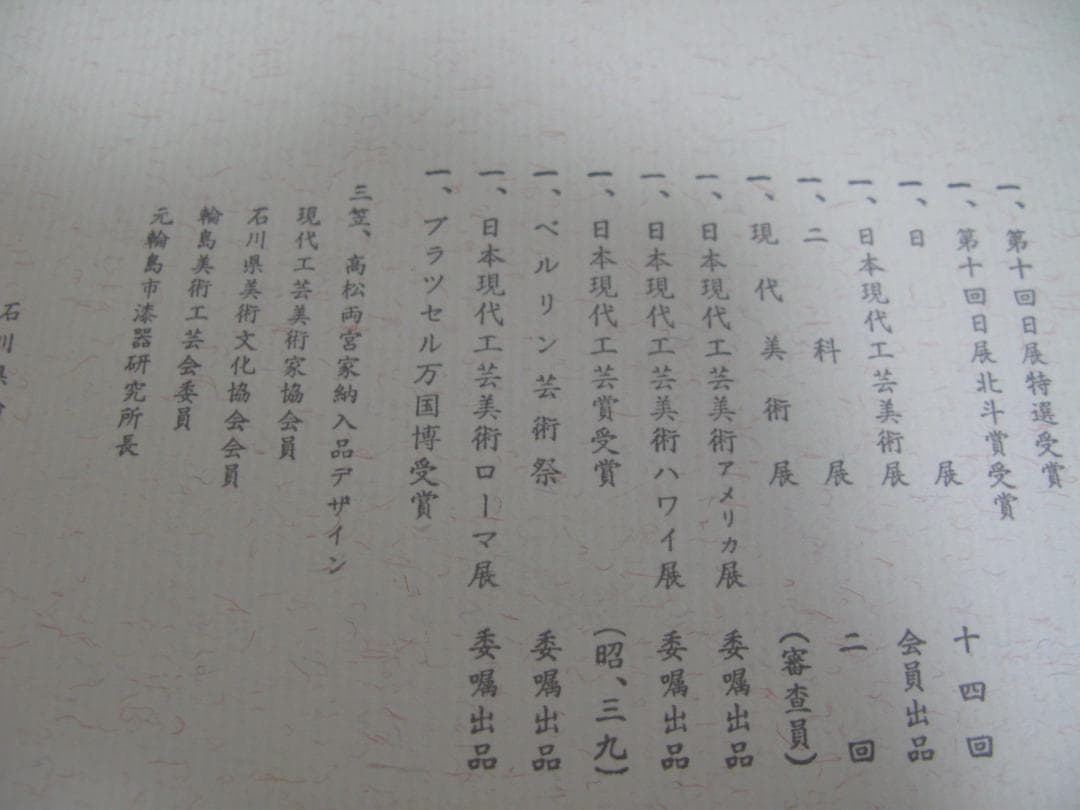 一、第十回日展特選受賞
一、第十回日展北斗賞受賞
一、日展 十四回
一、日本現代工芸美術展 会員出品
一、二科展 二回
一、現代美術展 (審査員)
一、日本現代工芸美術アメリカ展 委嘱出品
一、日本現代工芸美術ハワイ展 委嘱出品
一、日本現代工芸賞受賞 (昭、三九)
一、ベルリン芸術祭 委嘱出品
一、日本現代工芸美術ローマ展 委嘱出品
一、ブラツセル万国博受賞
三笠、高松両宮家納入品デザイン
現代工芸美術家協会員
石川県美術文化協会会員
輪島美術工芸会委員
元輪島市漆器研究所長
石川県